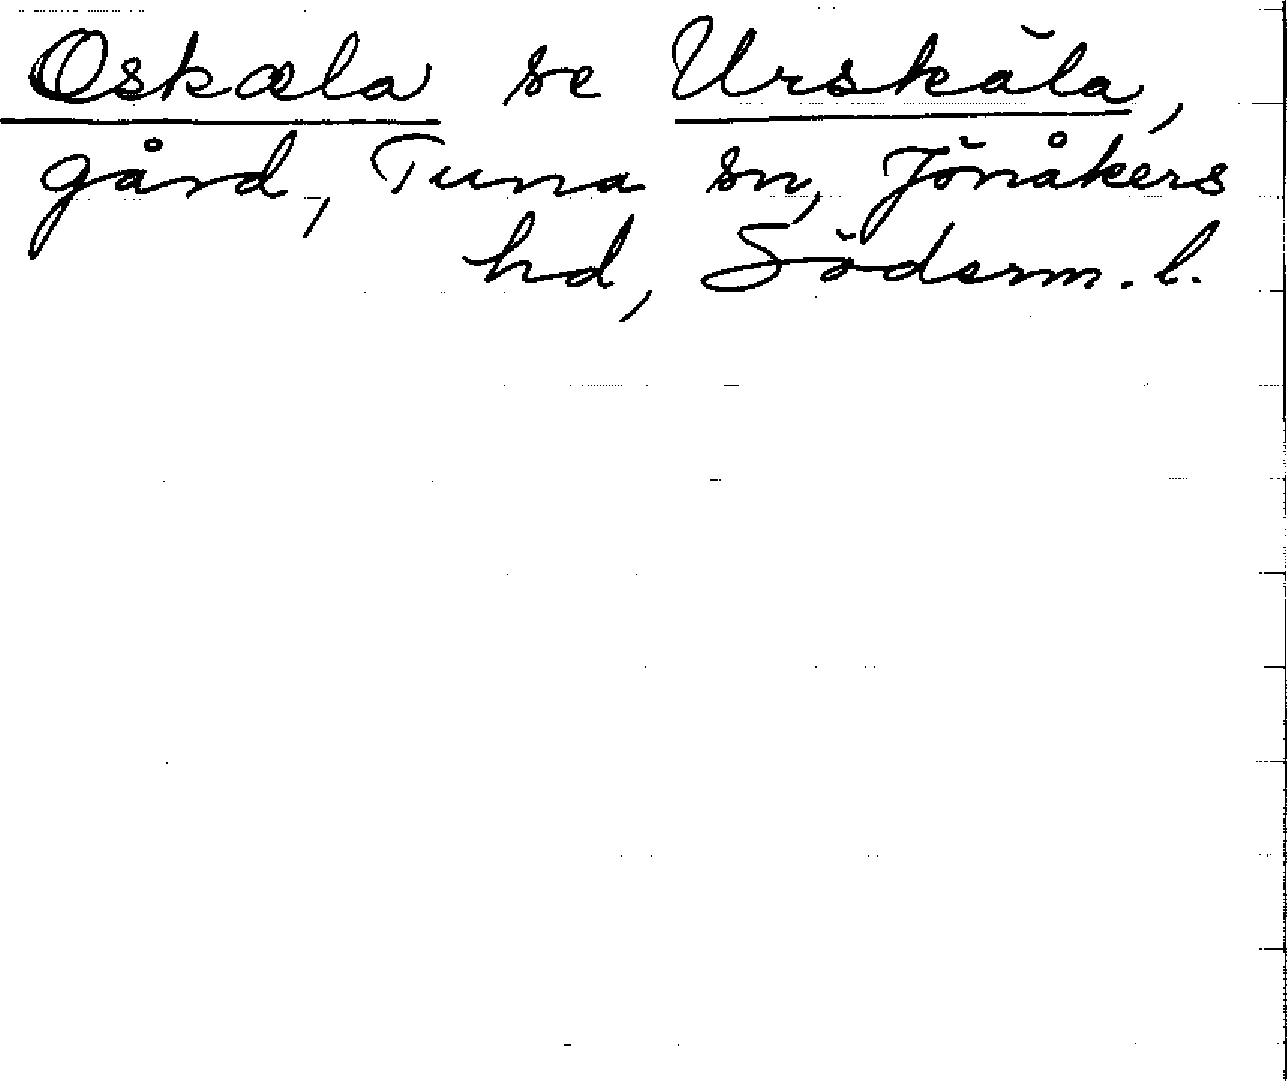 Oskæla se Urskäla,
gård, Tuna sn, Jönåkers
hd, Söderm. l.